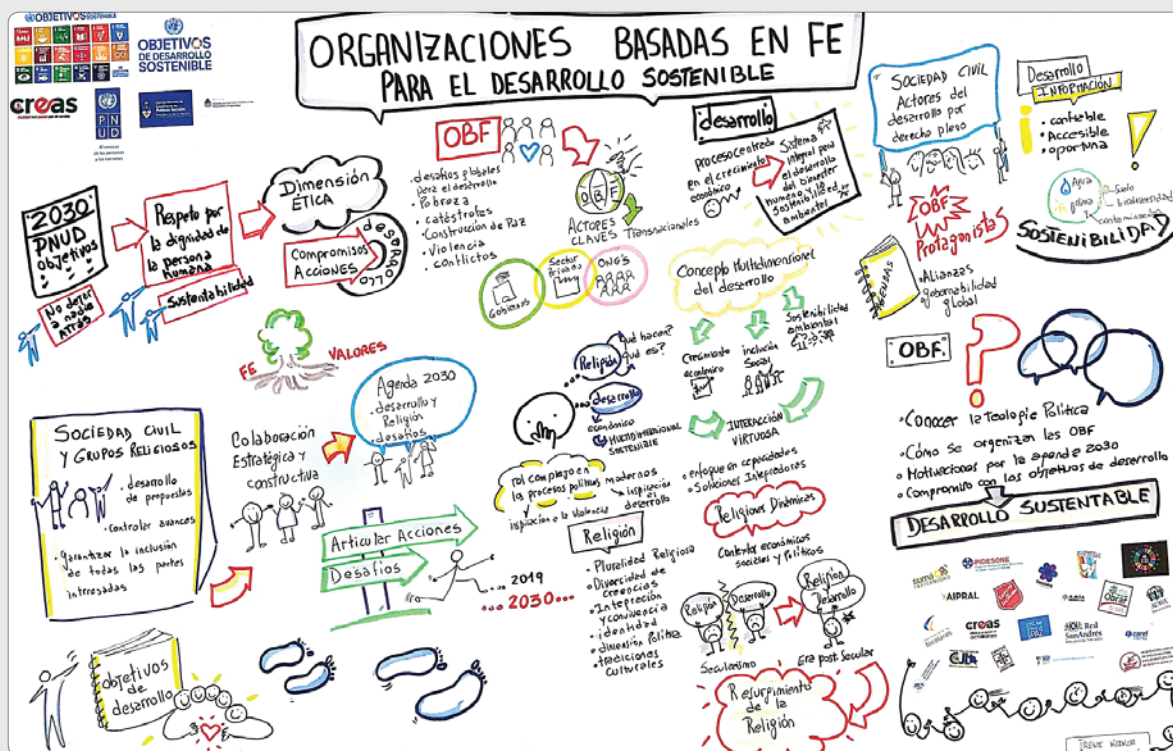 OBJETIVOS
OBJETIVOS
DE DESARROLLO
SOSTENIBLE
creas
P N
U D
ORGANIZACIONES BASADAS EN FE
PARA EL DESARROLLO SOSTENIBLE
2030
PNUD
objetivos
No dejar
a nadie
ATRÁS
Respeto por
la dignidad de
la persona
humana
Sustentabilidad
Dimensión
ÉTICA
Compromisos
Acciones
desarrollo
FE
VALORES
OBF
.desafíos globales
para el desarrollo
. Pobreza
. catástrofes
.Construcción de Paz
. Violencia
. conflictos
OBF
ACTORES
CLAVES Transnacionales
Gobiernos
Sector
Privado
ONG'S
desarrollo
proceso centrado
en el crecimiento
económico
Sistema
integral para
el desarrollo
del bienestar
humano y la
sostenibilidad
ambiental
Concepto Multidimensional
del desarrollo
Crecimiento
económico
inclusión
Social
Sostenibilidad
ambiental
INTERACCIÓN
VIRTUOSA
. enfoque en capacidades
. Soluciones Integradoras
SOCIEDAD CIVIL
Actores del
desarrollo por
derecho pleno
OBF
Protagonistas
AGENDAS
.Alianzas
.gobernabilidad
global
Desarrollo
INFORMACIÓN
i
• confiable
• Accesible
• oportuna
!
Agua
clima
Suelo
biodiversidad
contaminación
SOSTENIBILIDAD
OBF
?
•Conocer la Teología Política
•Cómo se organizan las OBF
•Motivaciones por la agenda 2030
•Compromiso con los objetivos de desarrollo
DESARROLLO SUSTENTABLE
SOCIEDAD CIVIL
Y GRUPOS RELIGIOSOS
• desarrollo
de propuestas
•controlar avances
•garantizar la inclusión
de todas las partes
interesadas
Colaboración
Estratégica y
constructiva
Agenda 2030
.desarrollo y
Religión
.desafíos
Articular Acciones
Desafíos
... 2019
... 2030...
objetivos
de
desarrollo
Religión
qué hacen?
qué es?
desarrollo
económico
MULTIDIMENSIONAL
SOSTENIBLE
rol complejo en
los procesos políticos modernos
inspiración a la violencia
inspiración al
desarrollo
Religión
• Pluralidad Religiosa
• Diversidad de
creencias
• Integración
y convivencia
• identidad
• dimensión Política
• tradiciones
culturales
Religiones Dinámicas
Contextos económicos
sociales y Políticos
Religión
Desarrollo
Secularismo
Religión
Desarrollo
Era post Secular
Resurgimiento
de la
Religión
PIDESONE
AIPRAL
creas
Red
SanAndrés